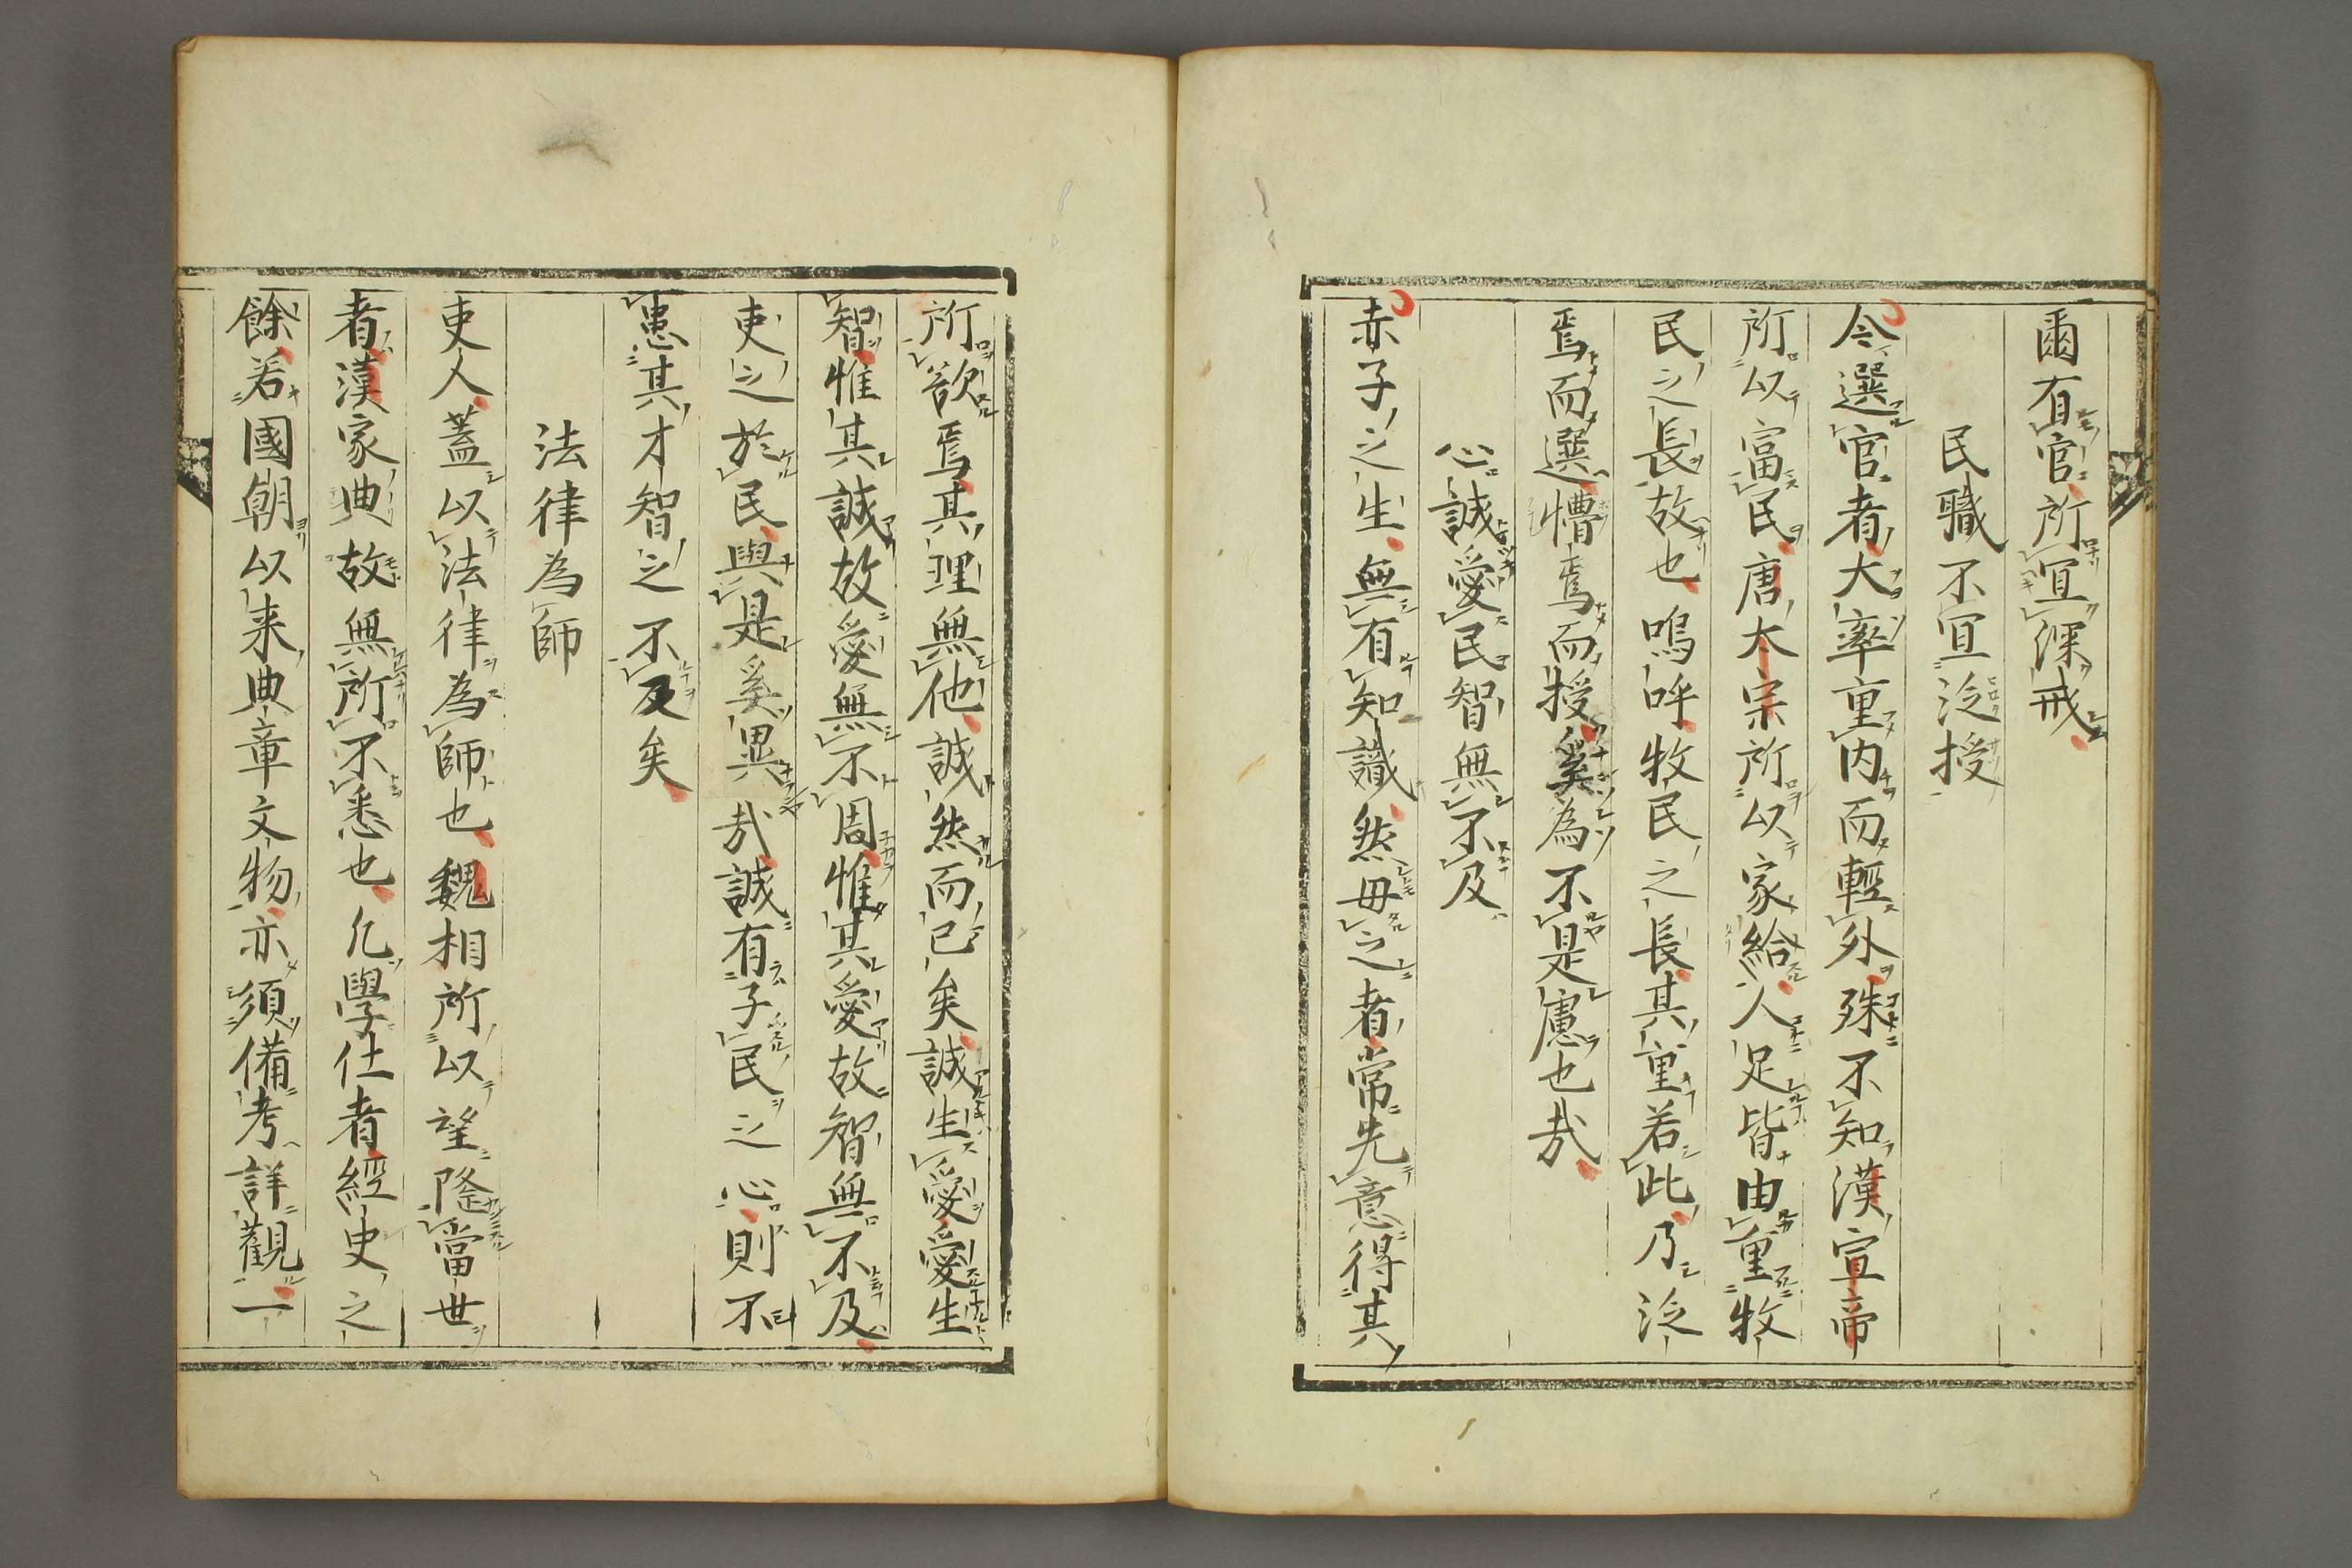 爾有官所宜深戒
民職不宜泛授
今選官者大率重内而輕外殊不知漢宣帝
所以富民唐太宗所以家給人足皆由重牧
民之長故也嗚呼牧民之長其重若此乃泛
焉而選慒焉而授奚為不是慮也哉
心誠愛民智無不及
赤子之生無有知識然母之者常先意得其
所欲焉其理無他誠然而已矣誠生愛愛生
智惟其誠故愛無不周惟其愛故智無不及
吏之於民與是奚異哉誠有子民之心則不
患其才智之不及矣
法律為師
吏人蓋以法律為師也魏相所以望隆當世
者漢家典故無所不悉也凢學仕者經史之
餘若國朝以来典章文物亦須備考詳觀一